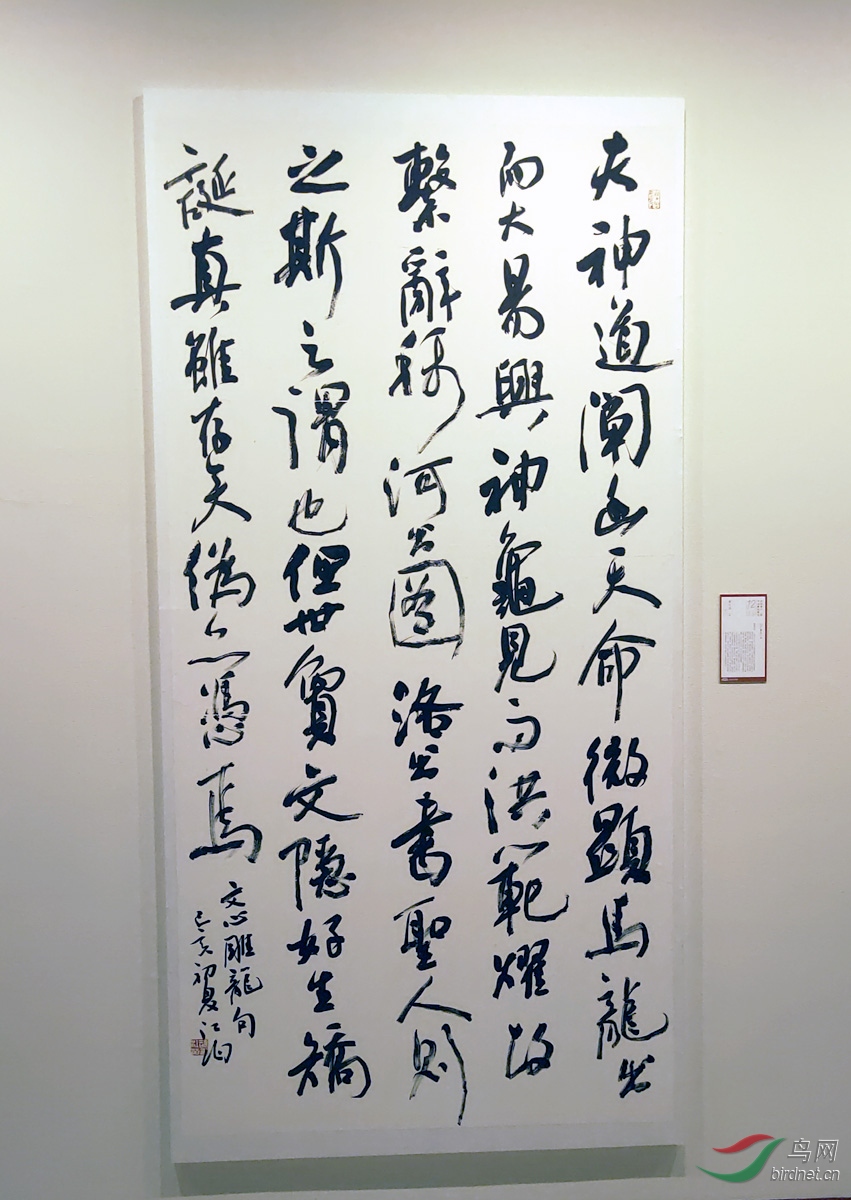 夫神道闡幽天命微顯馬龍出
而大易興神龜見而洪範耀故
繫辭稱河出圖洛出書聖人則
之斯之謂也但世夐文隱好生矯
誕真雖存矣偽亦憑焉
文心雕龍句
己亥初夏江
鸟网
birdnet.cn